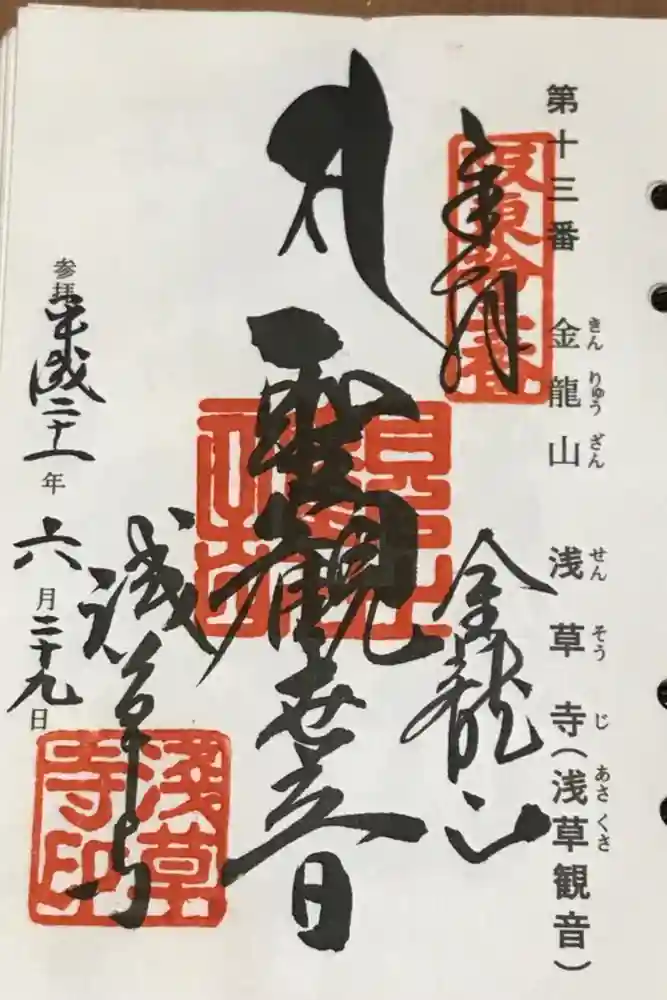 第十三番 金龍山 浅草寺(浅草観音)
きん りゅう ざん せん そう じ あさ くさ
奉拝
金龍山
聖観世音
浅草寺
淺草寺印
参拝 平成二十一年六月二十九日